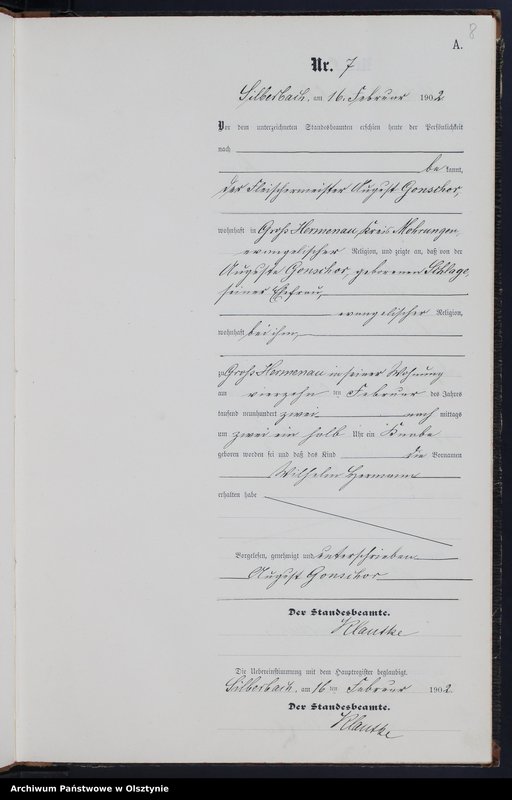 8
A.
Nr. 7
Silberbach, am 16. Februar 1902.
Vor dem unterzeichneten Standesbeamten erschien heute der Persönlichkeit
nach
bekannt,
der Fleischermeister August Gonschor,
wohnhaft in Groß Hermenau, Kreis Mohrungen,
evangelischer Religion, und zeigte an, daß von der
Auguste Gonschor, geborenen Schlage,
seiner Ehefrau,
evangelischer Religion,
wohnhaft bei ihm,
zu Groß Hermenau in seiner Wohnung
am vierzehn ten Februar des Jahres
tausend neunhundert zwei nach mittags
um zwei ein halb Uhr ein Knabe
geboren worden sei und daß das Kind die Vornamen
Wilhelm Hermann
erhalten habe
Vorgelesen, genehmigt und unterschrieben
August Gonschor
Der Standesbeamte.
Klautke
Die Uebereinstimmung mit dem Hauptregister beglaubigt.
Silberbach, am 16 ten Februar 1902.
Der Standesbeamte.
Klautke
Archiwum Państwowe w Olsztynie